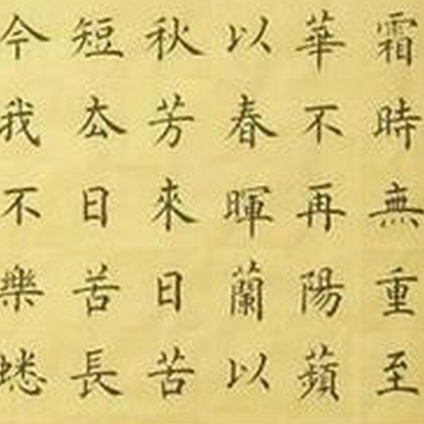 霜時無重至
華不再陽蘋
以春暉蘭以
秋芳來日苦
短厺日苦長
今我不樂蟋